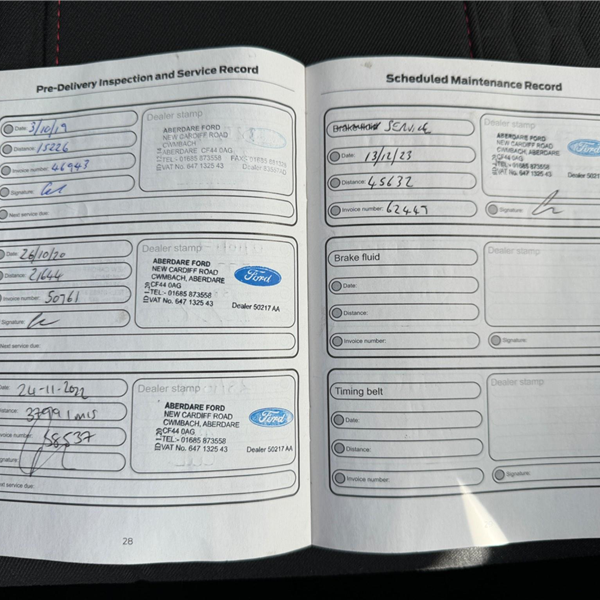 Pre-Delivery Inspection and Service Record
Date: 3/10/19
Distance: 15226
Invoice number: 46943
Signature:
Next service due:
Dealer stamp
ABERDARE FORD
NEW CARDIFF ROAD
CWMBACH
ABERDARE CF44 0AG
TEL:- 01685 873558 FAX:
VAT No. 647 1325 43
Date: 26/10/20
Distance: 21644
Invoice number: 50761
Signature:
Next service due:
Dealer stamp
ABERDARE FORD
NEW CARDIFF ROAD
CWMBACH, ABERDARE
CF44 0AG
TEL:- 01685 873558
VAT No. 647 1325 43
Dealer 50217 AA
Ford
Date: 24-11-2022
Distance: 37991 mls
Invoice number: 58537
Signature:
Next service due:
Dealer stamp
ABERDARE FORD
NEW CARDIFF ROAD
CWMBACH, ABERDARE
CF44 0AG
TEL:- 01685 873558
VAT No. 647 1325 43
Dealer 50217 AA
Ford
28
Scheduled Maintenance Record
Brake fluid SERVICE
Date: 13/12/23
Distance: 45632
Invoice number: 62447
Dealer stamp
ABERDARE FORD
NEW CARDIFF ROAD
CWMBACH, ABERDARE
CF44 0AG
TEL:- 01685 873558
VAT No. 647 1325 43
Ford
Signature:
Brake fluid
Date:
Distance:
Invoice number:
Dealer stamp
Signature:
Timing belt
Date:
Distance:
Invoice number:
Dealer stamp
Signature: